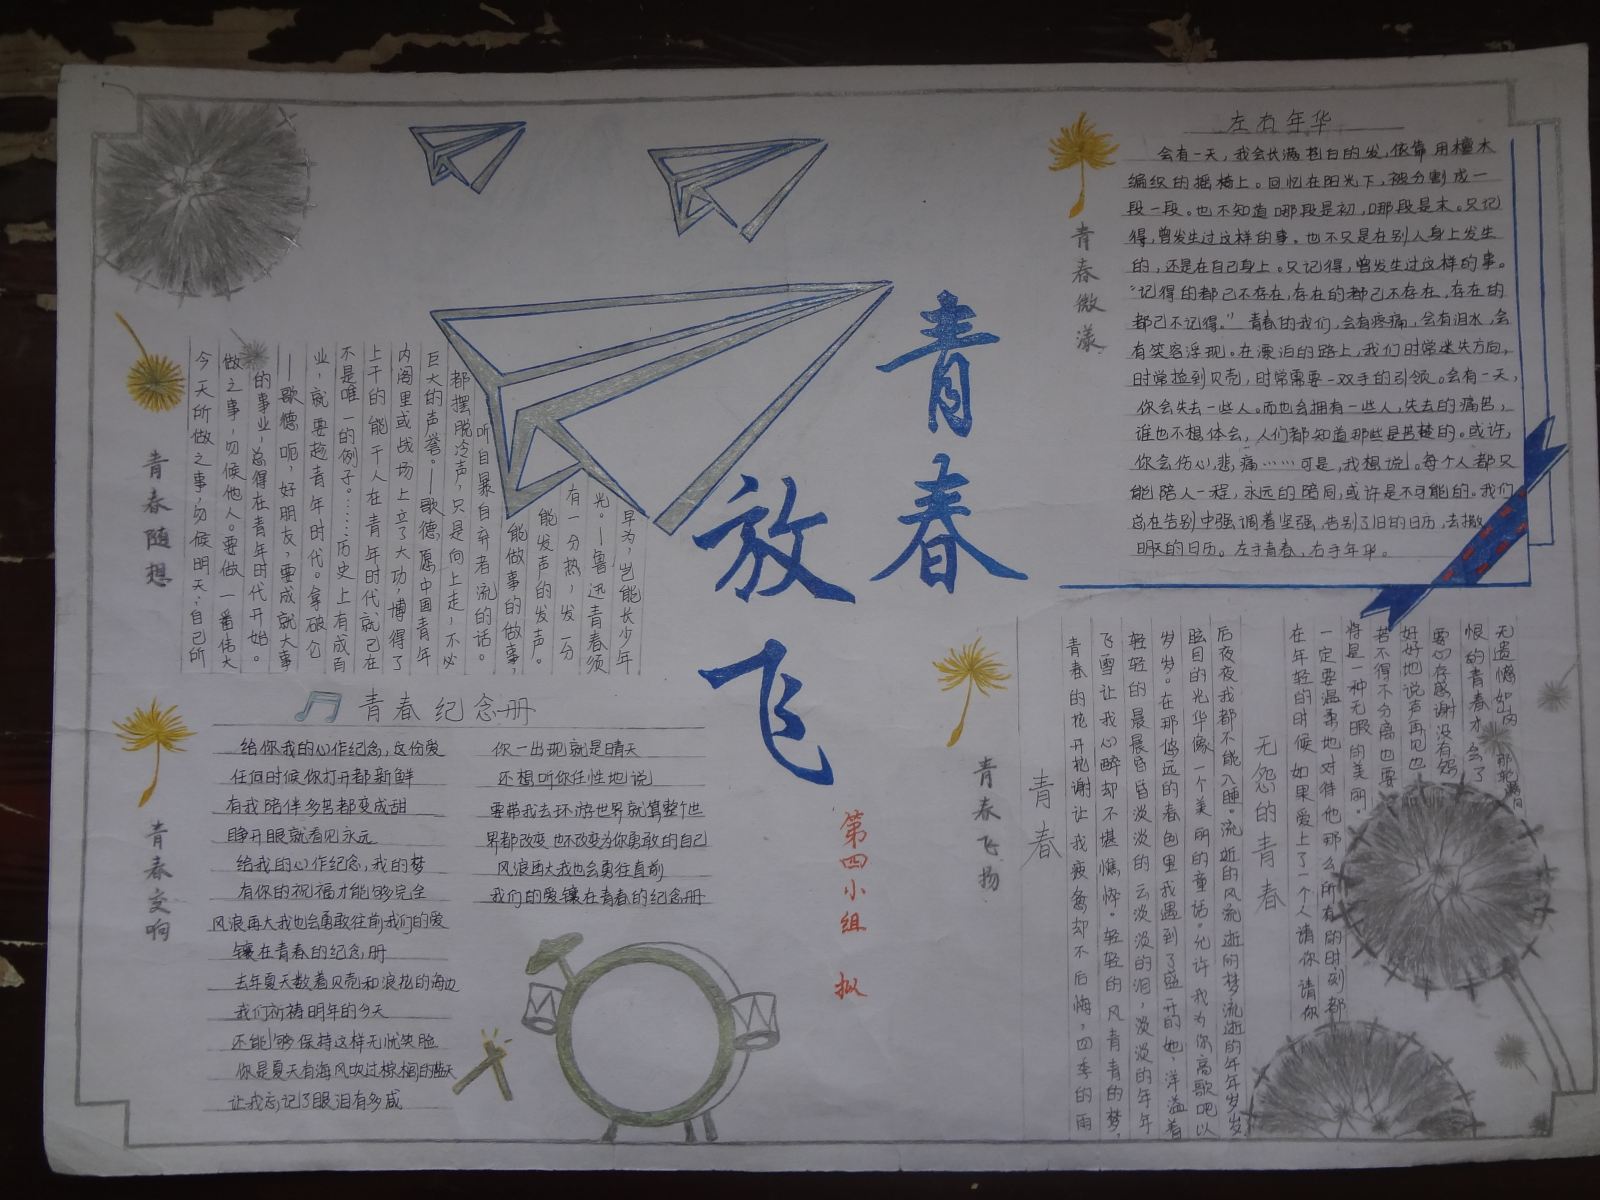 青春
放飞
第四小组 拟
青春随想
今天所做之事,勿候明天;自己所
做之事,勿候他人。要做一番伟大
的事业,总得在青年时代开始。
—歌德 呃,好朋友,要成就大事
业,就要趁青年时代。拿破仑
不是唯一的例子……历史上有成百
上千的能干人在青年时代就已在
内阁里或战场上立了大功,博得了
巨大的声誉。—歌德 愿中国青年
都摆脱冷声,只是向上走,不必
听自暴自弃者流的话。
能做事的做事,
能发声的发声。
有一分热,发一分
光。—鲁迅 青春须
早为,岂能长少年
青春微漾
左右年华
会有一天,我会长满苍白的发,依靠用檀木
编织的摇椅上。回忆在阳光下,被分割成一
段一段。也不知道哪段是初,哪段是末。只记
得,曾发生过这样的事。也不只是在别人身上发生
的,还是在自己身上。只记得,曾发生过这样的事。
“记得的都已不存在,存在的都已不存在,存在的
都已不记得。” 青春的我们,会有疼痛,会有泪水,会
有笑容浮现。在漂泊的路上,我们时常迷失方向,
时常捡到贝壳,时常需要一双手的引领。会有一天,
你会失去一些人。而也会拥有一些人,失去的痛苦,
谁也不想体会,人们都知道那些是苦楚的。或许,
你会伤心,悲痛……可是,我想说。每个人都只
能陪人一程,永远的陪同,或许是不可能的。我们
总在告别中强调着坚强,告别了旧的日历,去撒
明天的日历。左手青春,右手年华。
青春交响
青春纪念册
给你我的心作纪念,这份爱
任何时候你打开都新鲜
有我陪伴多苦都变成甜
睁开眼就看见永远
给我的心作纪念,我的梦
有你的祝福才能够完全
风浪再大我也会勇敢往前我们的爱
镶在青春的纪念册
去年夏天数着贝壳和浪花的海边
我们祈祷明年的今天
还能够保持这样无忧笑脸
你是夏天有海风吹过棕榈的蓝天
让我忘记了眼泪有多咸
你一出现就是晴天
还想听你任性地说
要带我去环游世界就算整个世
界都改变也不改变为你勇敢的自己
风浪再大我也会勇往直前
我们的爱镶在青春的纪念册
青春飞扬
青春
青春的花开花谢让我疲惫却不后悔,四季的雨
飞雪让我心醉却不堪憔悴。轻轻的风青青的梦,
轻轻的晨晨昏昏淡淡的云淡淡的泪,淡淡的年年
岁岁。在那悠远的春色里我遇到了盛开的她,洋溢着
眩目的光华像一个美丽的童话。允许我为你高歌吧以
后夜夜我都不能入睡。流逝的风流逝的梦流逝的年年岁岁
无怨的青春
在年轻的时候如果爱上了一个人请你请你
一定要温柔地对待他那么所有的时刻都
将是一种无暇的美丽。
若不得不分离也要
好好地说声再见也
要心存感谢没有怨
恨的青春才会了
无遗憾如